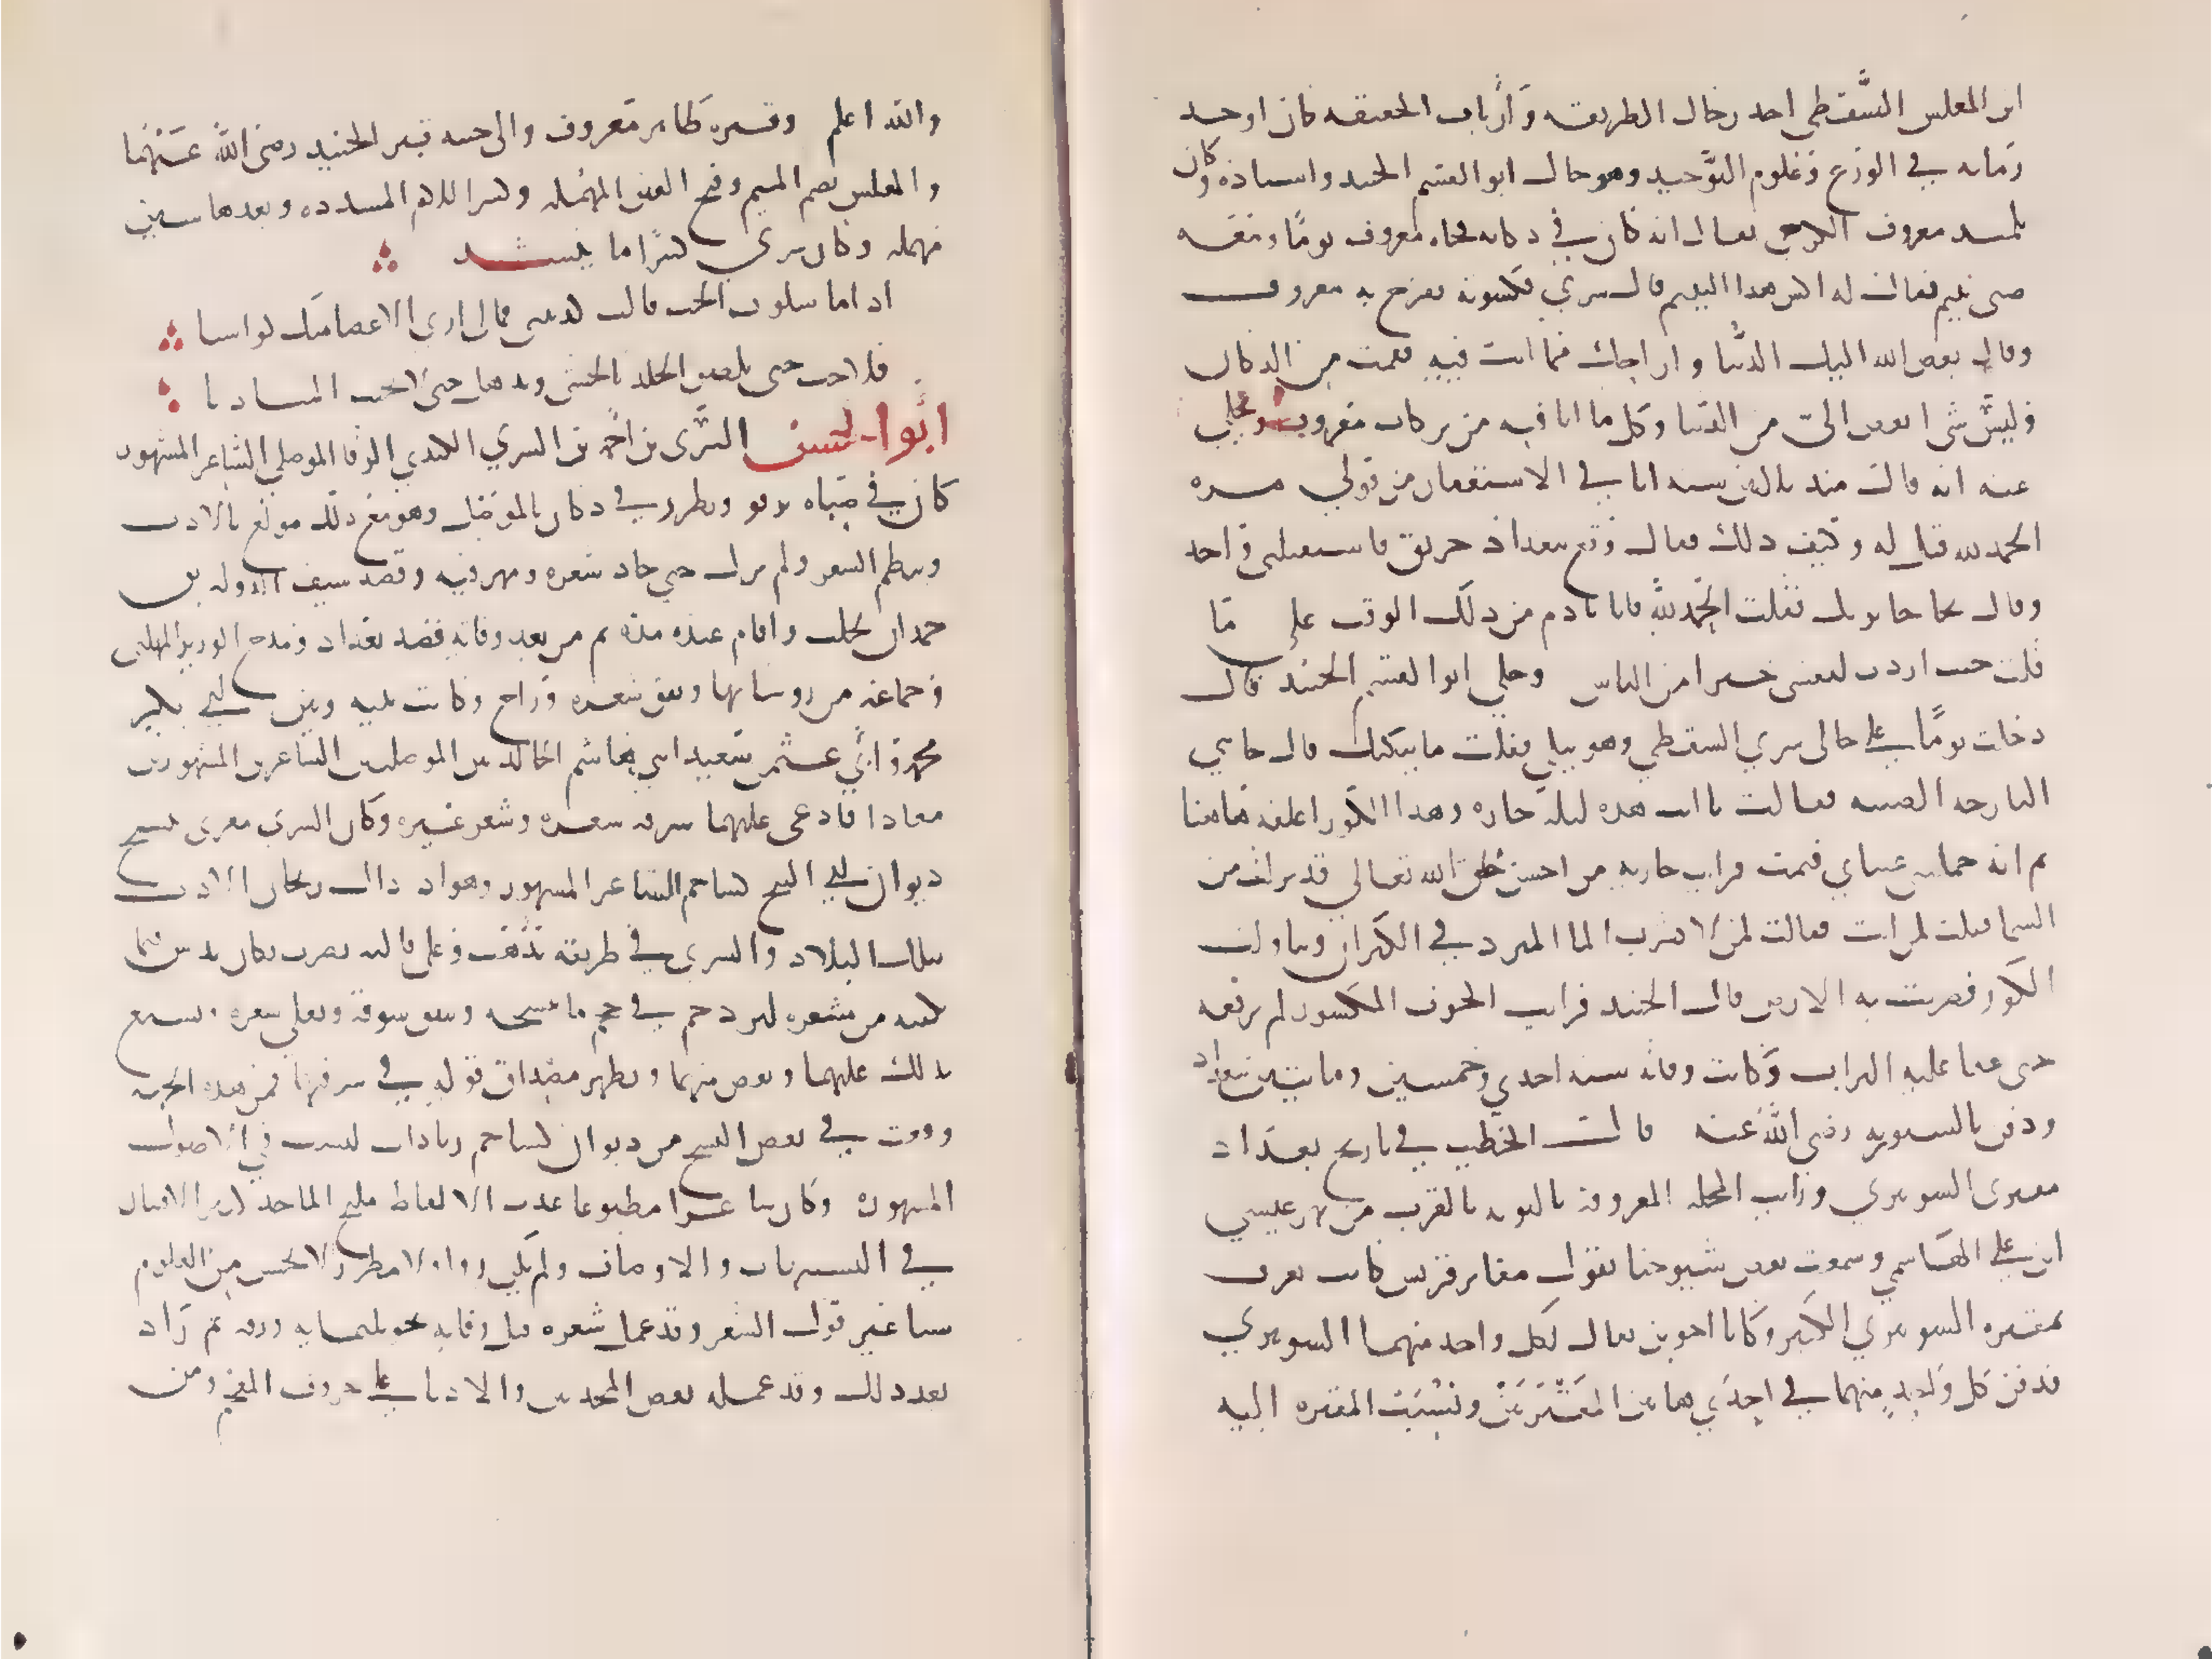 ابن المغلس السَّقطي احد رجال الطريقه وَأَرْباب الحقيقه كان اوحد
زمانه في الورع وعلوم التَّوحيد وهو خال ابو القسم الجنيد واستاذه وكان
تلميذ معروف الكرخي يقال انه كان في دكانه فجاه معروف يومًا ومعه
صبي يتيم فقال له اكس هذا اليتيم قال سري فكسوته ففرح به معروف
وقال بغض الله اليك الدنيا واراحك مما انت فيه فقمت من الدكان
وليس شي ابغض اليّ من الدنيا وكل ما انا فيه من بركات معروف وحكي
عنه انه قال منذ ثلاثين سنه انا في الاستغفار من قولي مره
الحمد لله قيل له وكيف ذلك فقال وقع ببغداذ حريق فاستقبلني واحد
وقال نجا حانوتك فقلت الحمد لله فانا نادم من ذلك الوقت على ما
قلت حيث اردت لنفسي خيرا من الناس وحكى ابو القسم الجنيد قال
دخلت يومًا على خالي سري السقطي وهو يبكي فقلت ما يبكيك قال جاتني
البارحه الصبيه فقالت يا ابت هذه ليله حاره وهذا الكوز اعلقه هاهنا
ثم انه حملتني عيناي فنمت فرايت جاريه من احسن خلق الله تعالي قد نزلت من
السما فقلت لمن انت فقالت لمن لا يشرب الما المبرد في الكيزان وتناولت
الكوز فضربت به الارض قال الجنيد فرايت الخزف المكسور لم يرفعه
حتى عفا عليه التراب وكانت وفاته سنه احدي وخمسين وماتين ببغداد
ودفن بالشونيزيه رضي الله عنه قال الخطيب في تاريخ بغداد
مقبرتي الشونيزي وراب المحله المعروفه بالتوثه بالقرب من نهر عيسي
ابن علي الهاشمي وسمعت بعض شيوخنا يقول مقابر قريش كانت تعرف
بمقبره الشونيزي الكبير وكانا اخوين يقال لكل واحد منهما الشونيزي
فدفن كل واحد منهما في احدي هاتين المقبرتين ونسبت المقبره اليه
والله اعلم وقبره ظاهر معروف والى جنبه قبر الجنيد رضي الله عنهما
والمغلس بضم الميم وفتح الغين المهمله وكسر اللام المشدده وبعدها سين
مهمله وكان سري كثيرًا ما ينشد
اذا ما شكوت الحب قالت كذبتني فمالي اري الاعضا منك كواسيا
فلا حب حتى يلصق الجلد بالحشى وتذهل حتى لا تجيب المناديا
ابو الحسن السَّري بن احمد بن السري الكندي الرفا الموصلي الشاعر المشهور
كان في صباه يرفو ويطرز في دكان بالموصل وهو مع ذلك مولع بالادب
وينظم الشعر ولم يزل حتى جاد شعره ومهر فيه وقصد سيف الدوله بن
حمدان بحلب واقام عنده مده ثم من بعد وفاته قصد بغداد ومدح الوزير المهلبي
وجماعه من روسائها ونفق شعره وراج وكانت بينه وبين ابي بكر
محمد وابي عثمن سعيد ابني هاشم الخالديين الموصليين الشاعرين المشهورين
معادا فادعى عليهما سرقه شعره وشعر غيره وكان السري مغرى بنسخ
ديوان ابي الفتح كشاجم الشاعر المشهور وهو اذ ذاك ريحان الادب
بتلك البلاد والسري في طريقه يذهب وعلى قالبه يضرب فكان يدس فيما
يكتبه من شعره ليزيد في حجم ما ينسخه وينفق سوقه ويغلي سعره ويشنع
بذلك عليهما ويغض منهما ويظهر مصداق قوله في سرقتهما فمن هذه الجهه
ووقعت في بعض النسخ من ديوان كشاجم زيادات ليست في الاصول
المشهوره وكان شاعرا مطبوعا عذب الالفاظ مليح الماخذ كثير الافتنان
في التشبيهات والاوصاف ولم يكن له روا ولا منظر ولا يحسن من العلوم
شيا غير قول الشعر وقد عمل شعره قبل وفاته نحو ثلثمايه ورقه ثم زاد
بعد ذلك وقد عمله بعض المحدثين والادبا على حروف المعجم ومن